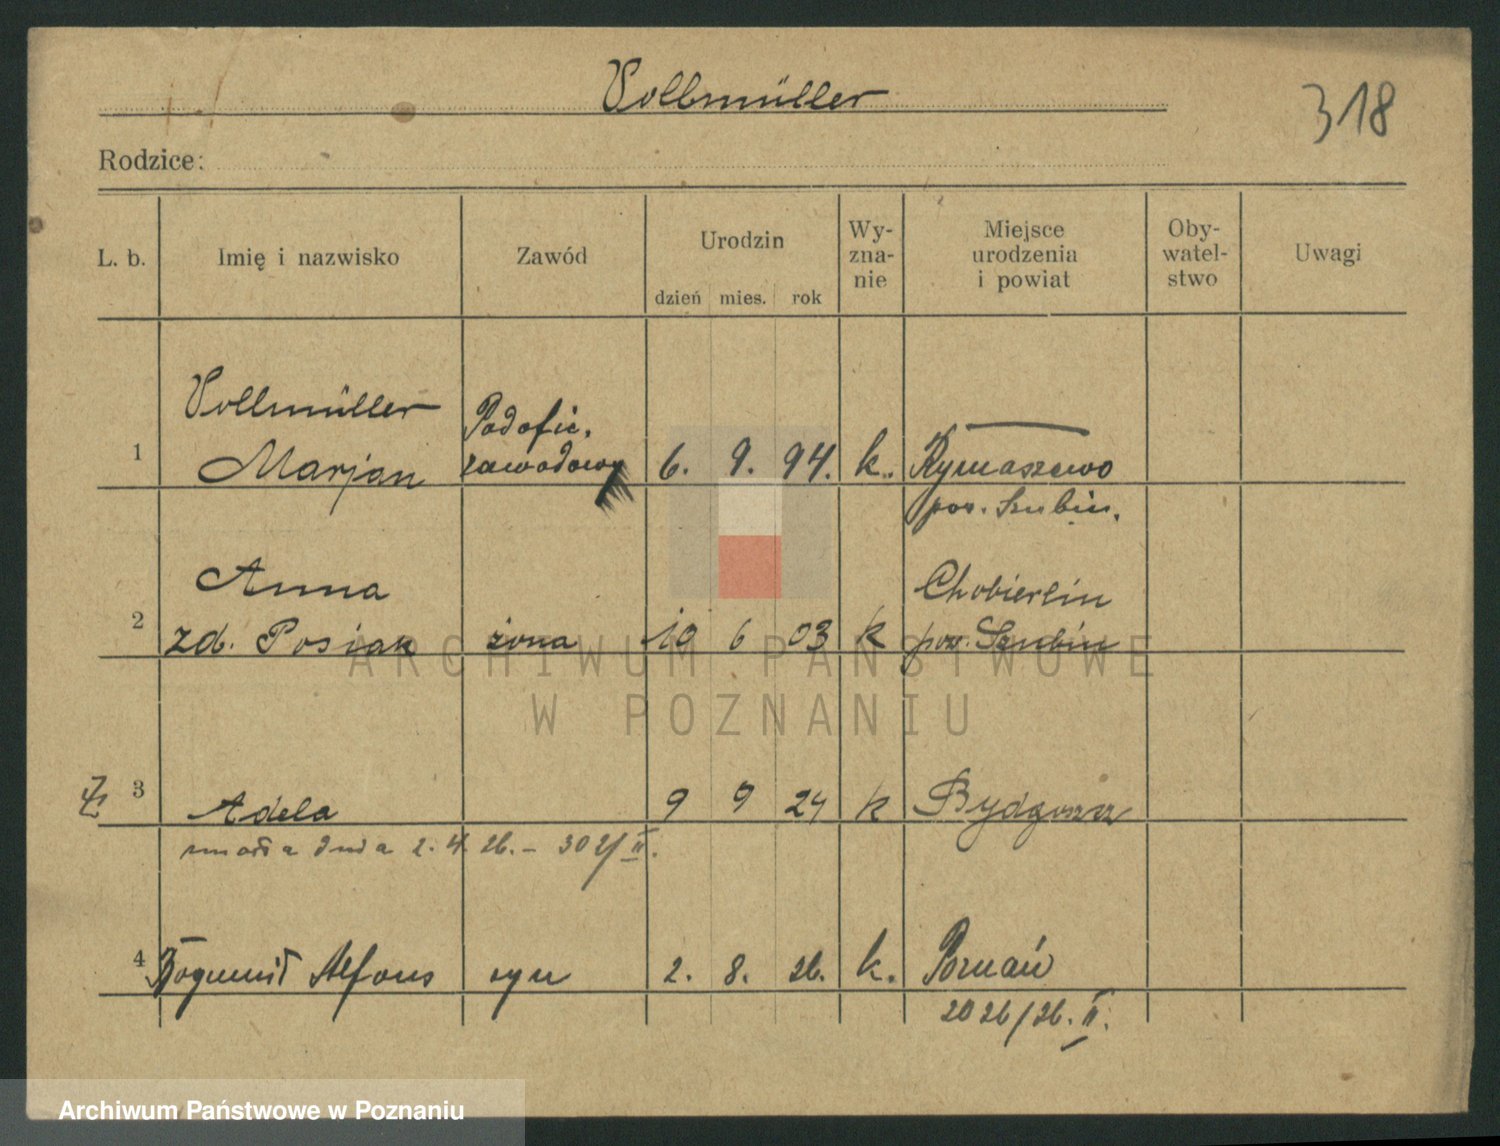 Vollmüller
318
Rodzice:
L. b. Imię i nazwisko Zawód Urodzin Wy-zna-nie Miejsce urodzenia i powiat Oby-watel-stwo Uwagi
dzień mies. rok
Vollmüller Podofic.
1 Marjan zawodowy 6. 9. 94. k. Rymaszewo
pow. Szubin.
Anna Chobierlin
2 zd. Posiak żona 10 6 03 k pow. Szubin
3 Adela 9 9 24 k Bydgoszcz
zmarła dnia 2. 4. 26. – 302/II.
4 Bogumił Alfons syn 2. 8. 26. k. Poznań
2026/26. II.
ARCHIWUM PAŃSTWOWE
W POZNANIU
Archiwum Państwowe w Poznaniu